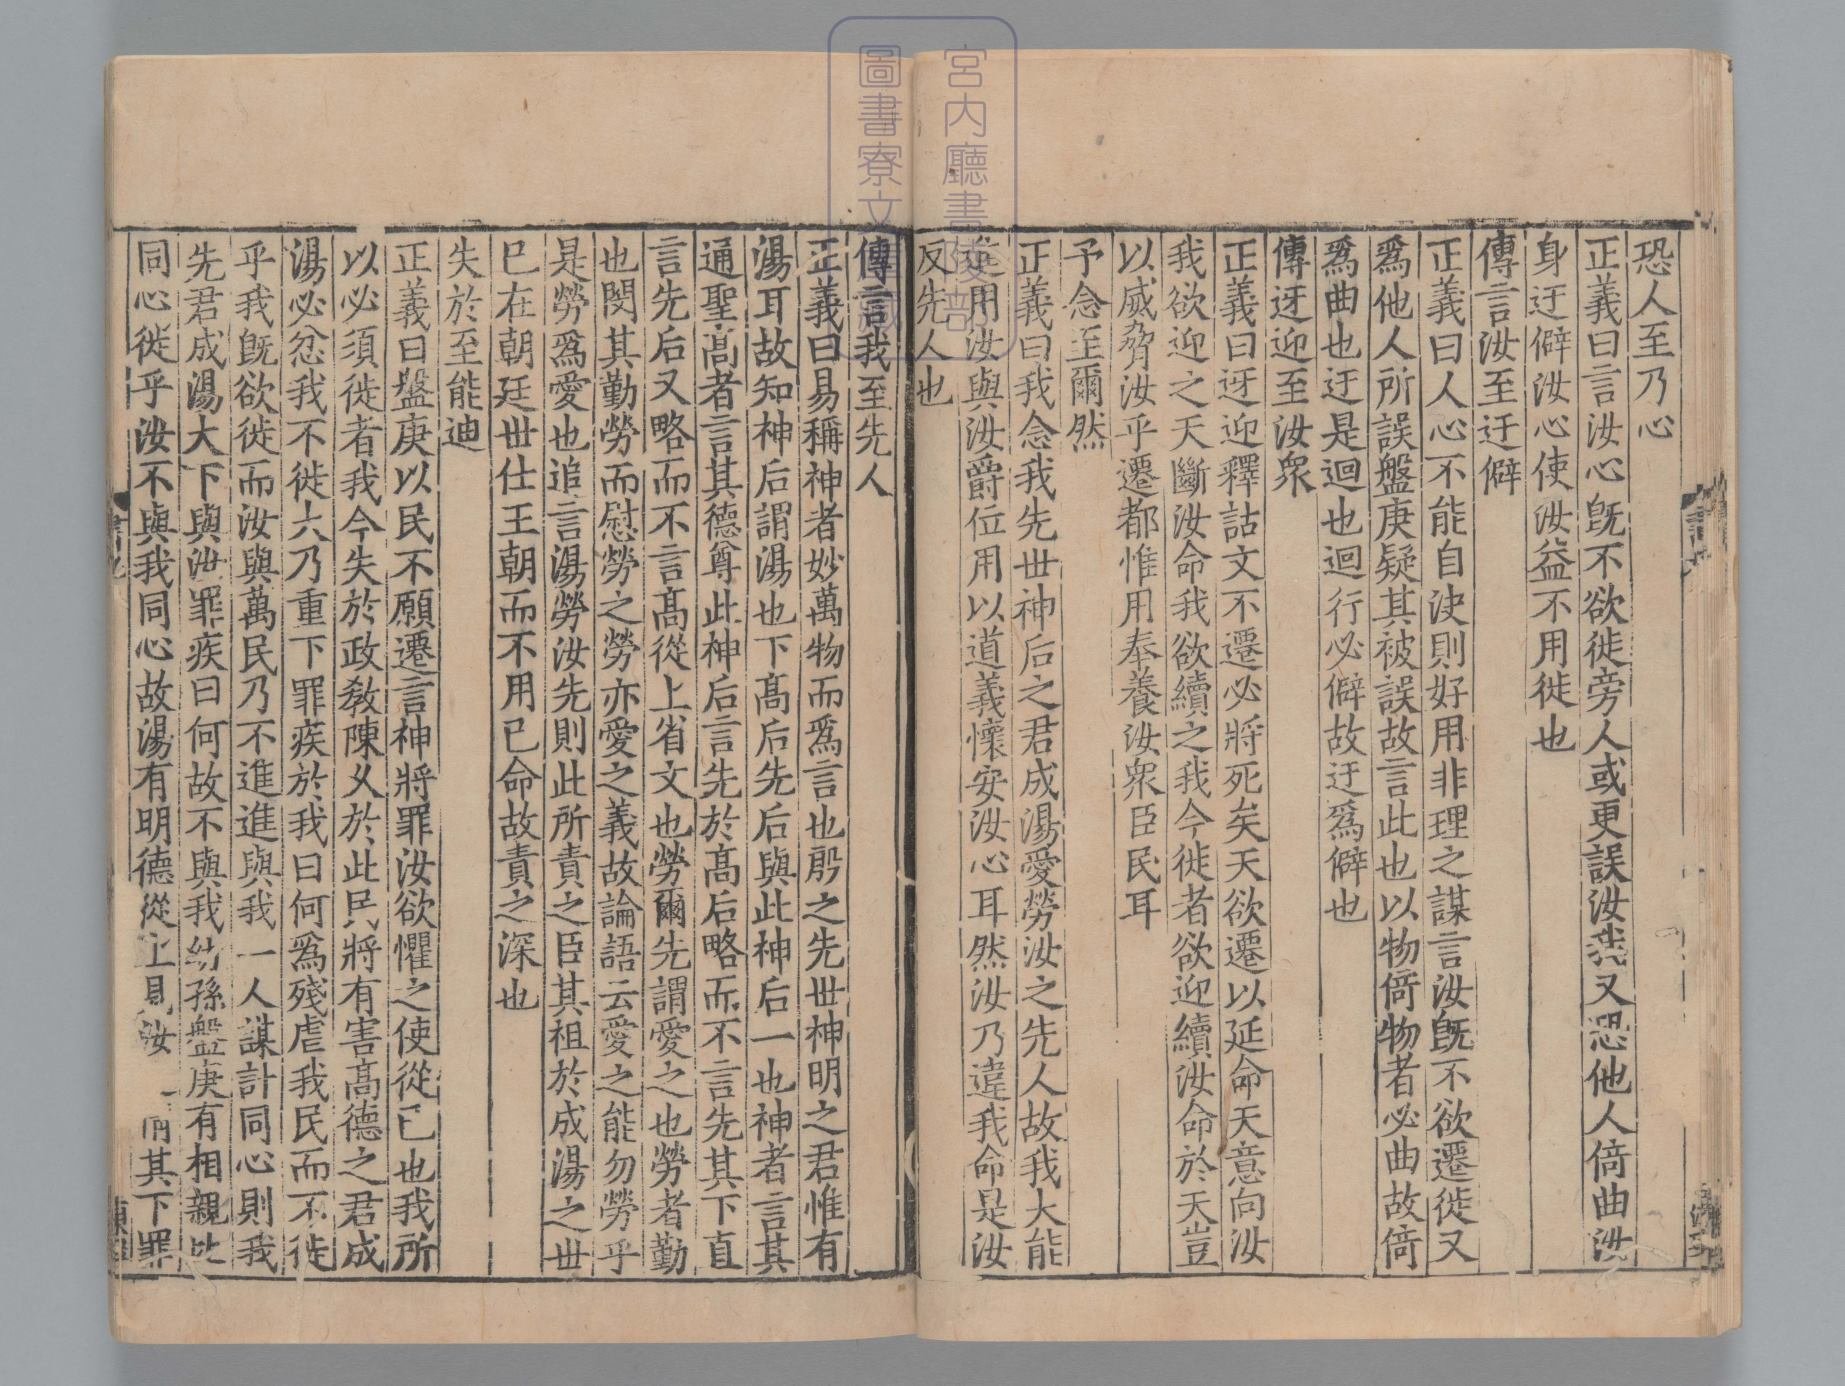 恐人至乃心
正義曰言汝心旣不欲徙旁人或更誤汝我又恐他人倚曲汝
身迂僻汝心使汝益不用徙也
傳言汝至迂僻
正義曰人心不能自決則好用非理之謀言汝旣不欲遷徙又
爲他人所誤盤庚疑其被誤故言此也以物倚物者必曲故倚
爲曲也迂是迴也迴行必僻故迂爲僻也
傳迓迎至汝衆
正義曰迓迎釋詁文不遷必將死矣天欲遷以延命天意向汝
我欲迎之天斷汝命我欲續之我今徙者欲迎續汝命於天豈
以威脅汝乎遷都惟用奉養汝衆臣民耳
予念至爾然
正義曰我念我先世神后之君成湯愛勞汝之先人故我大能
進用汝與汝爵位用以道義懷安汝心耳然汝乃違我命是汝
反先人也
傳言我至先人
正義曰易稱神者妙萬物而爲言也殷之先世神明之君惟有
湯耳故知神后謂湯也下高后先后與此神后一也神者言其
通聖高者言其德尊此神后言先於高后略而不言先其下直
言先后又略而不言高從上省文也勞爾先謂愛之也勞者勤
也閔其勤勞而慰勞之勞亦愛之義故論語云愛之能勿勞乎
是勞爲愛也追言湯勞汝先則此所責之臣其祖於成湯之世
已在朝廷世仕王朝而不用己命故責之深也
失於至能迪
正義曰盤庚以民不願遷言神將罪汝欲懼之使從己也我所
以必須徙者我今失於政教陳久於此民將有害高德之君成
湯必忿我不徙大乃重下罪疾於我曰何爲殘虐我民而不徙
乎我旣欲徙而汝與萬民乃不進進與我一人謀計同心則我
先君成湯大下與汝罪疾曰何故不與我幼孫盤庚有相親比
同心徙乎汝不與我同心故湯有明德從上見汝 情其下罪
宮内廳書陵部
圖書寮文庫藏